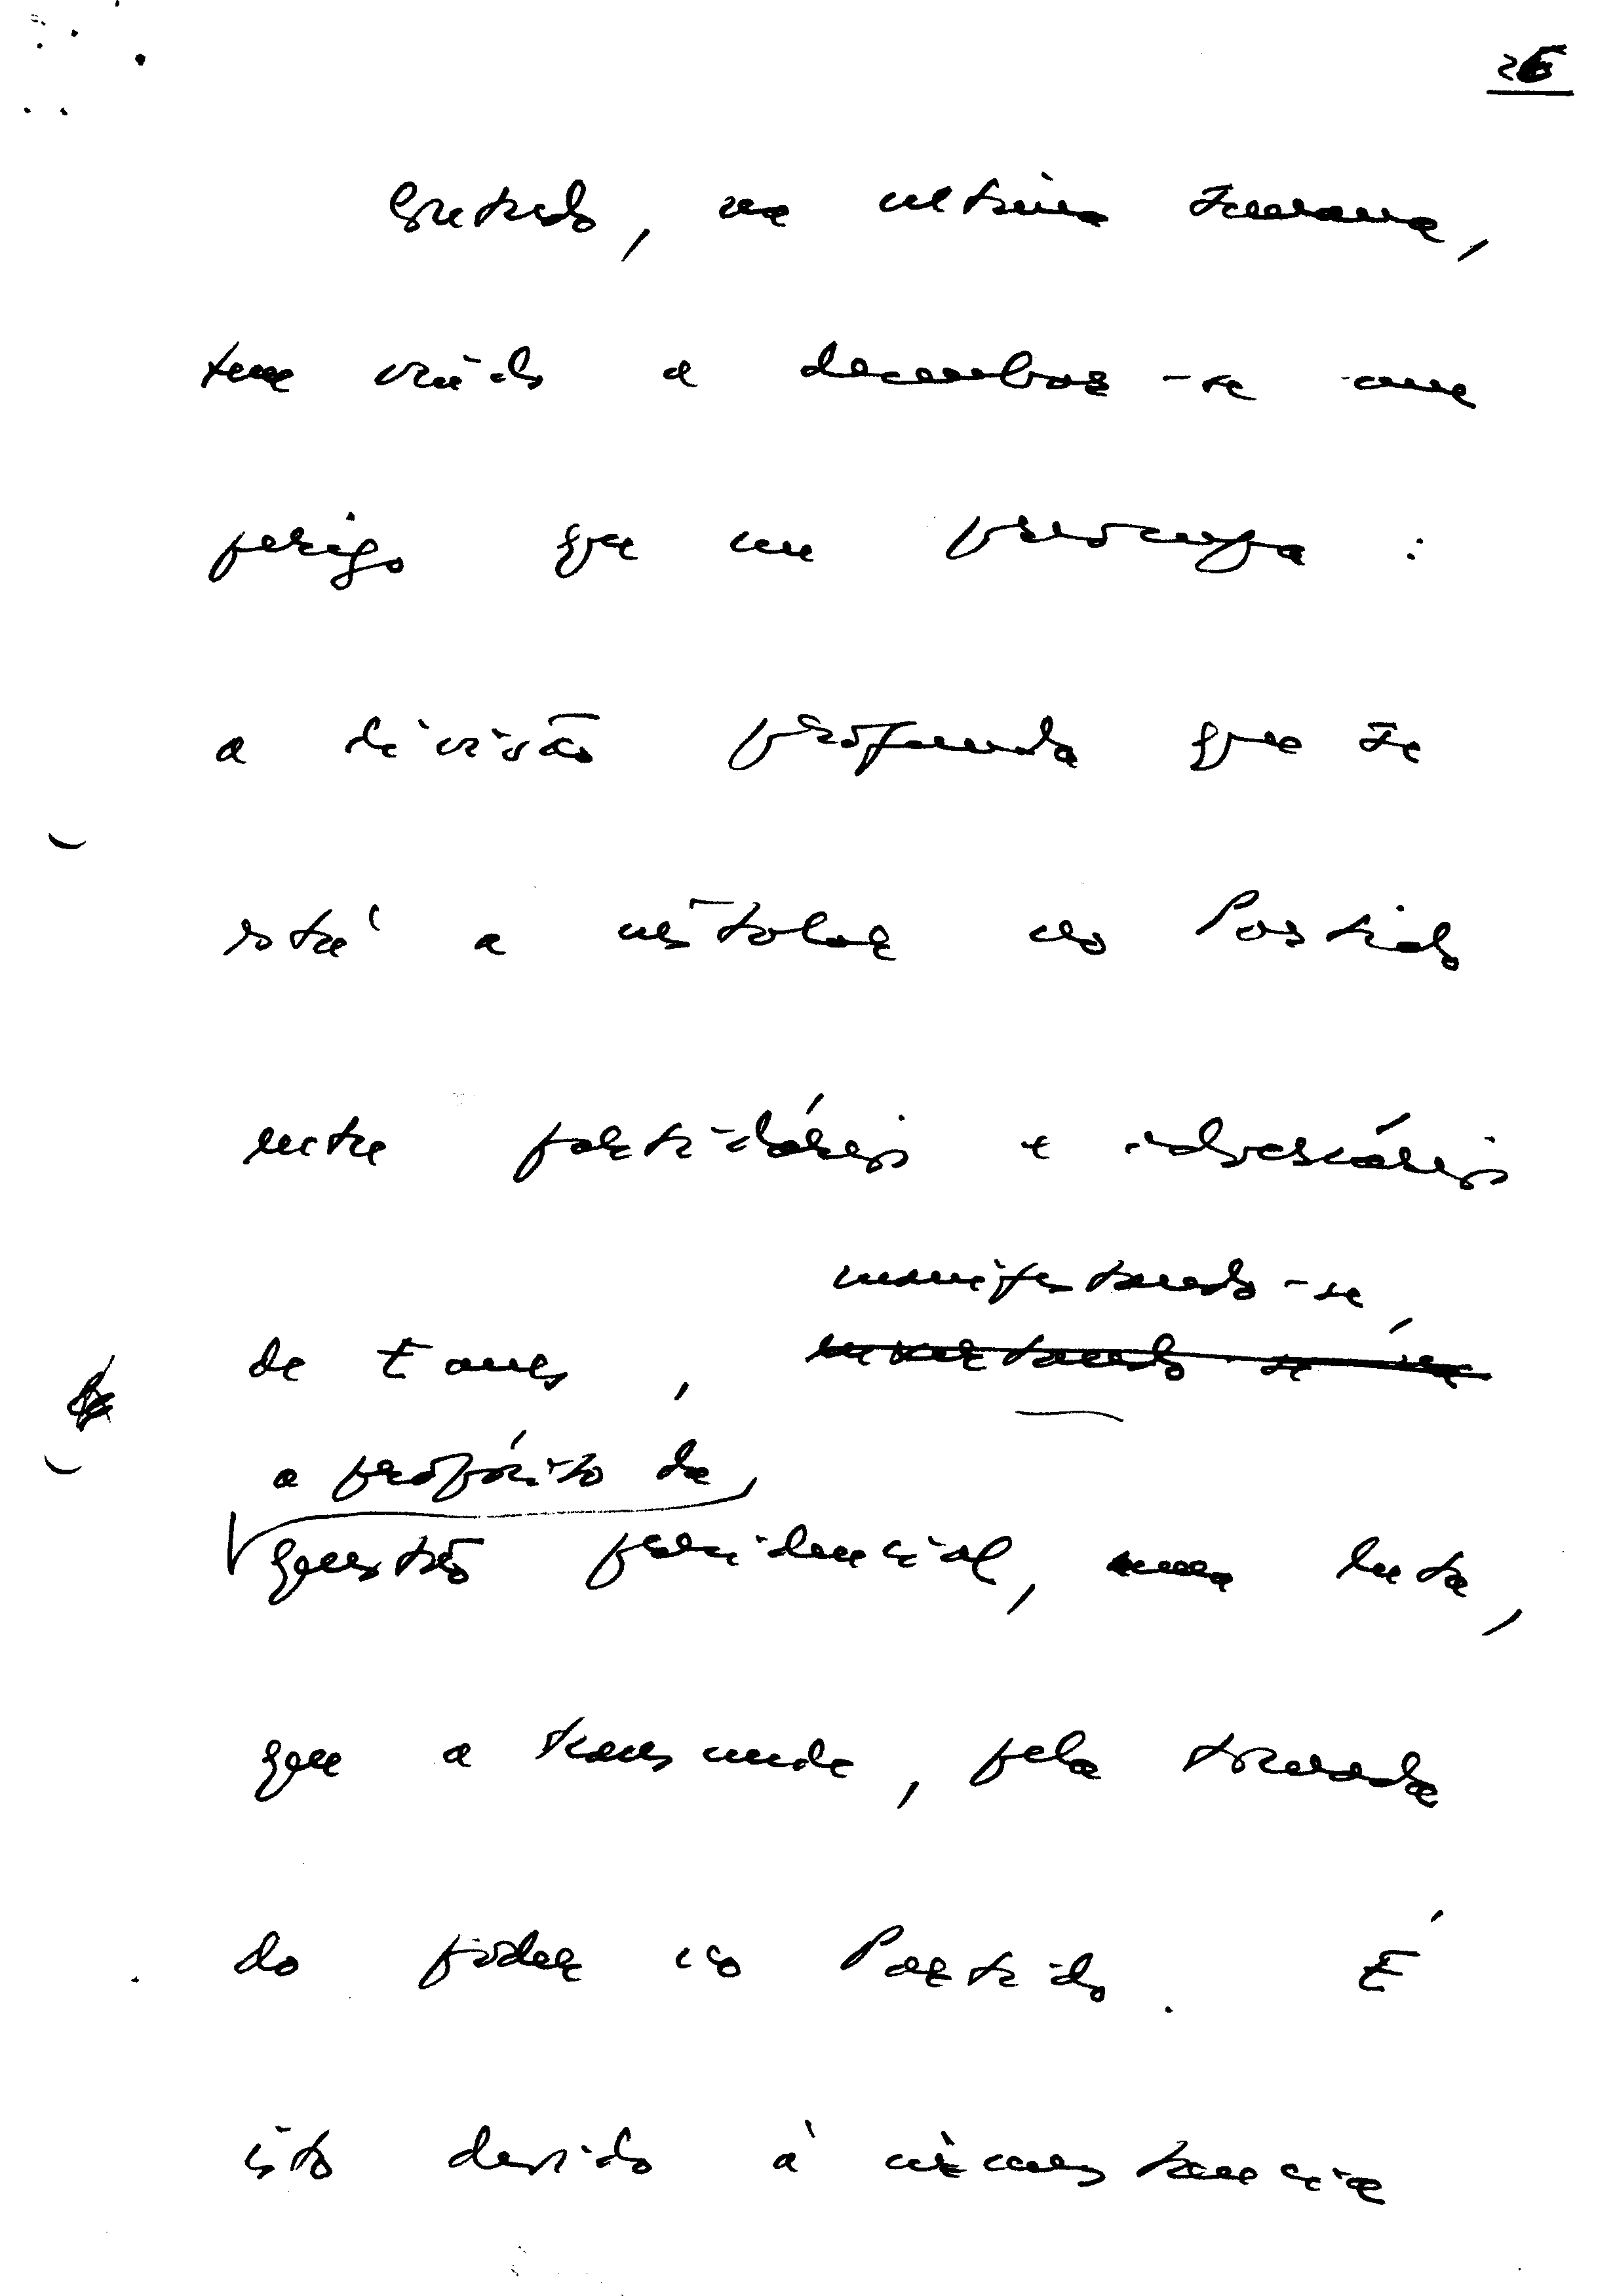 26
Contudo, na ultima semana,
tem vindo a desenhar-se um
perigo que me preocupa:
a divisão profunda que se
está a instalar no Partido
entre partidários e adversários
manifestando-se,
de Eanes,
a propósito da
questão presidencial, numa luta,
que a transcende, pela tomada
do poder no Partido. É
isto devido à circunstância